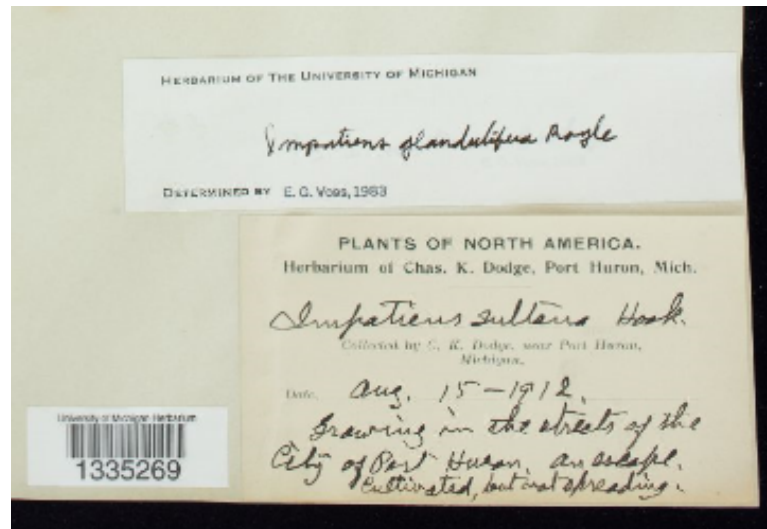 HERBARIUM OF THE UNIVERSITY OF MICHIGAN
Impatiens glandulifera Royle
DETERMINED BY E. G. Voss, 1983
PLANTS OF NORTH AMERICA.
Herbarium of Chas. K. Dodge, Port Huron, Mich.
Impatiens sultana Hook.
Collected by C. K. Dodge, near Port Huron,
Michigan.
Date, Aug. 15-1912.
Growing in the streets of the
City of Port Huron. An escape.
Cultivated, but not spreading.
University of Michigan Herbarium
1335269